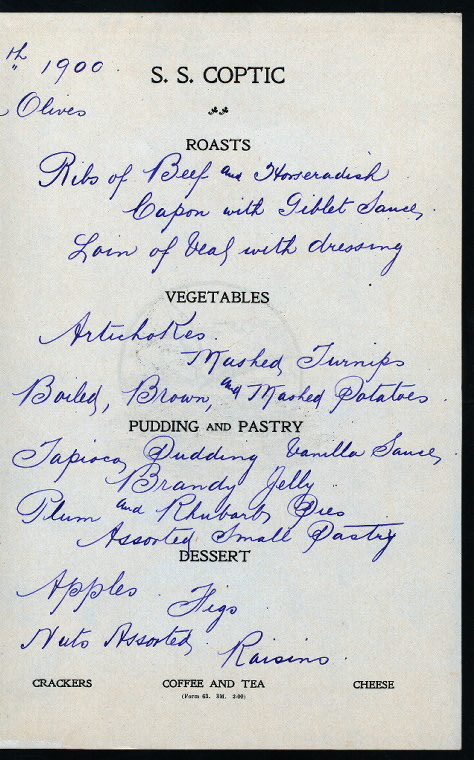 th 1900.
S. S. COPTIC
Olives
ROASTS
Ribs of Beef and Horseradish
Capon with Giblet Sauce.
Loin of Veal with dressing
VEGETABLES
Artichokes.
Mashed Turnips
Boiled, Brown, and Mashed Potatoes.
PUDDING AND PASTRY
Tapioca Pudding Vanilla Sauce,
Brandy Jelly.
Plum and Rhubarb Pies
Assorted Small Pastry
DESSERT
Apples. Figs
Nuts Assorted, Raisins.
CRACKERS COFFEE AND TEA CHEESE
(Form 63. 3M. 2-00)